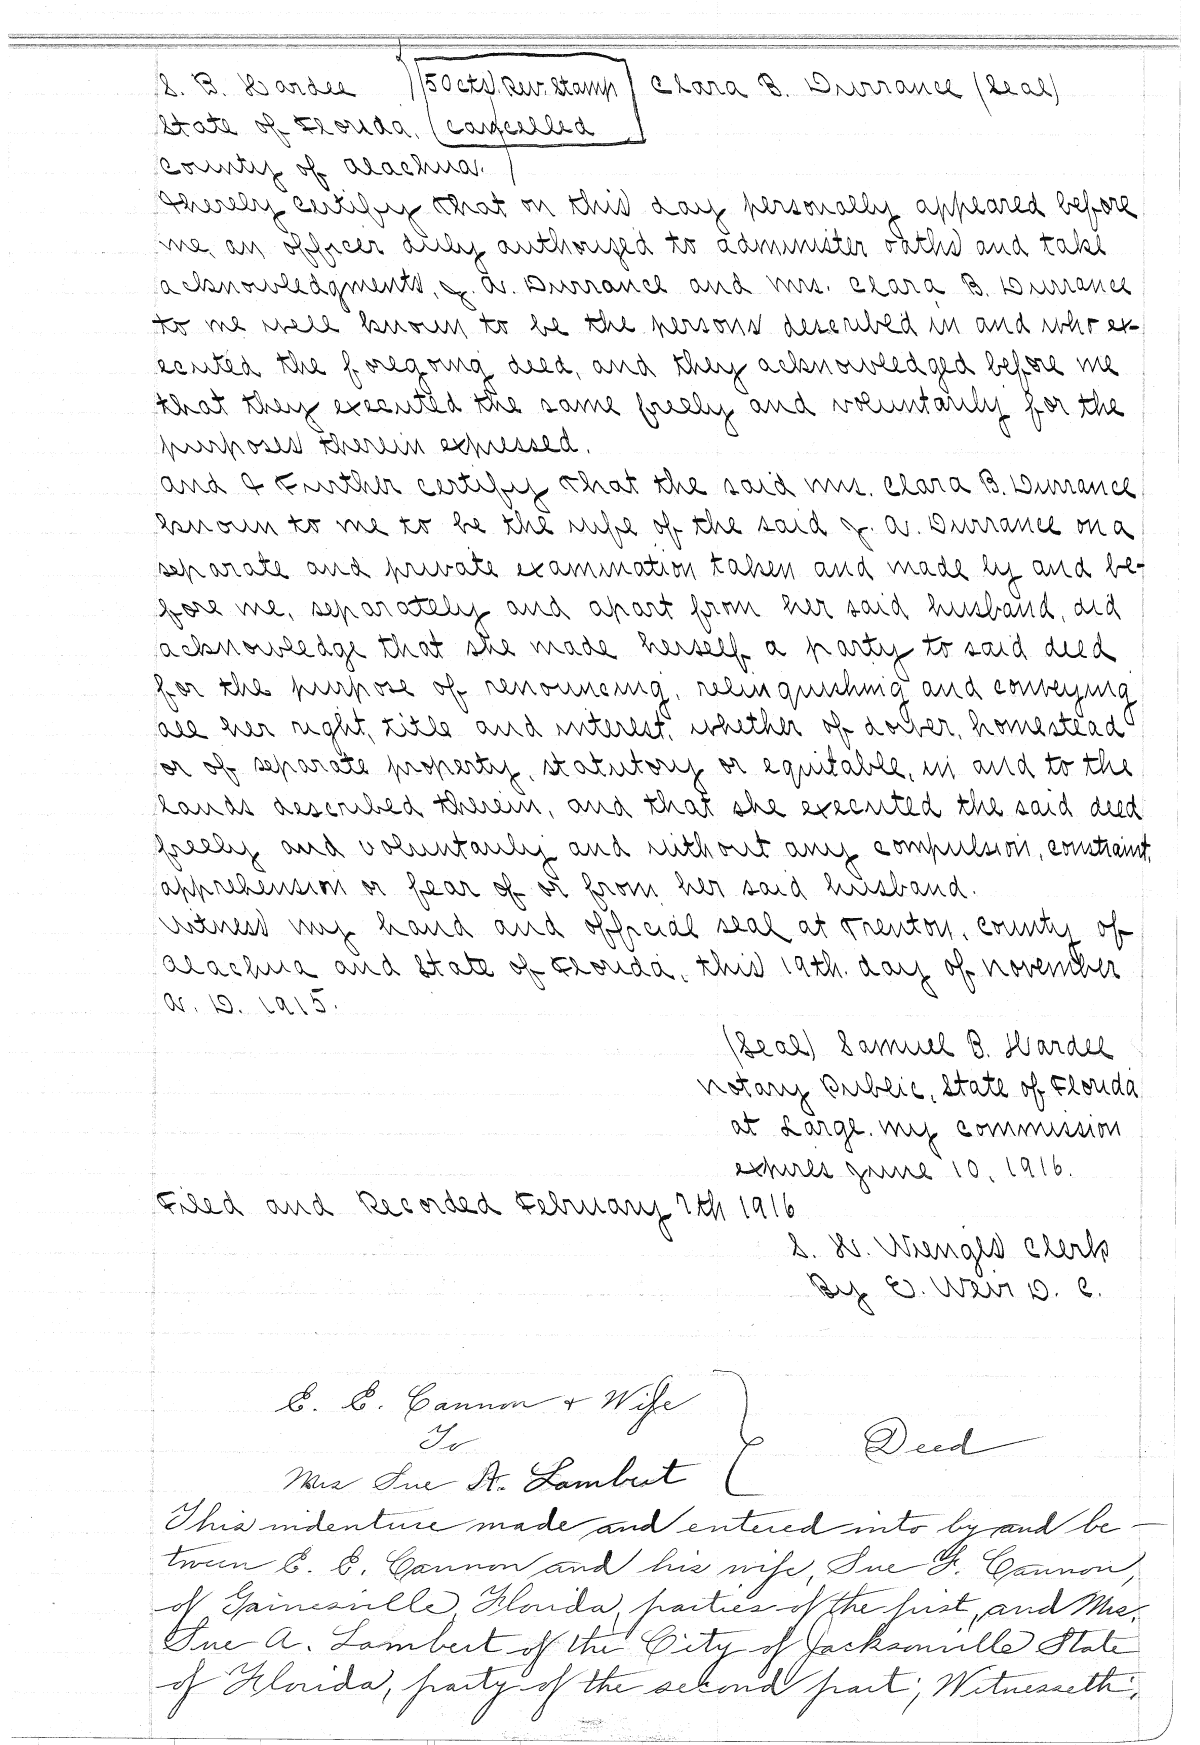 S. B. Hardee ) 50cts. Rev. Stamp Clara B. Durrance (Seal)
State of Florida, cancelled
County of Alachua.
I hereby certify that on this day personally appeared before
me, an officer duly authorized to administer oaths and take
acknowledgments, J. A. Durrance and Mrs. Clara B. Durrance
to me well known to be the persons described in and who ex-
ecuted the foregoing deed, and they acknowledged before me
that they executed the same freely and voluntarily for the
purposes therein expressed.
And I Further certify that the said Mrs. Clara B. Durrance
known to me to be the wife of the said J. A. Durrance on a
separate and private examination taken and made by and be-
fore me, separately and apart from her said husband, did
acknowledge that she made herself a party to said deed
for the purpose of renouncing, relinquishing and conveying
all her right, title and interest, whether of dower, homestead
or of separate property, statutory or equitable, in and to the
lands described therein, and that she executed the said deed
freely and voluntarily and without any compulsion, constraint,
apprehension or fear of or from her said husband.
Witness my hand and official seal at Trenton, County of
Alachua and State of Florida, this 19th. day of November
A. D. 1915.
(Seal) Samuel B. Hardee
Notary Public, State of Florida
at Large. My commission
expires June 10, 1916.
Filed and Recorded February 7th 1916
S. H. Wienges Clerk
By E. Weir D. C.
E. E. Cannon & Wife
To
Deed
Mrs Sue A. Lambert
This indenture made and entered into by and be-
tween E. E. Cannon and his wife, Sue F. Cannon,
of Gainesville, Florida, parties of the first, and Mrs.
Sue A. Lambert of the City of Jacksonville State
of Florida, party of the second part; Witnesseth;